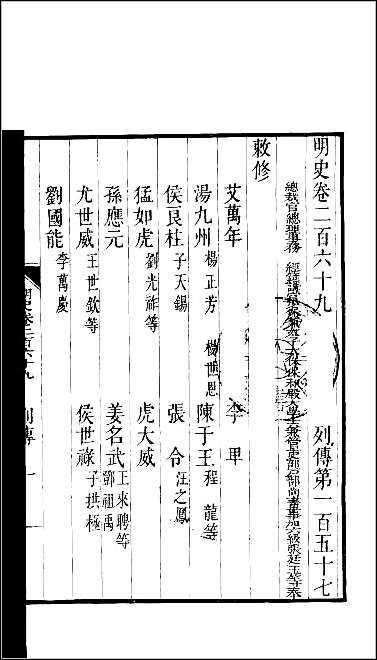 明史卷二百六十九 列傳第一百五十七
總裁官總理事務 經筵講官太保兼太子太保保和殿大學士兼管吏部戶部尚書事加六級張廷玉等奉
敕修
艾萬年 李 甲
湯九州 楊正芳 楊世恩 陳于王 程龍等
侯良柱 子天錫 張 令 汪之鳳
猛如虎 劉光祚等 虎大威
孫應元 姜名武 王來聘等 鄧祖禹
尤世威 王世欽等 侯世祿 子拱極
劉國能 李萬慶
明史卷二百六十九 列傳 一